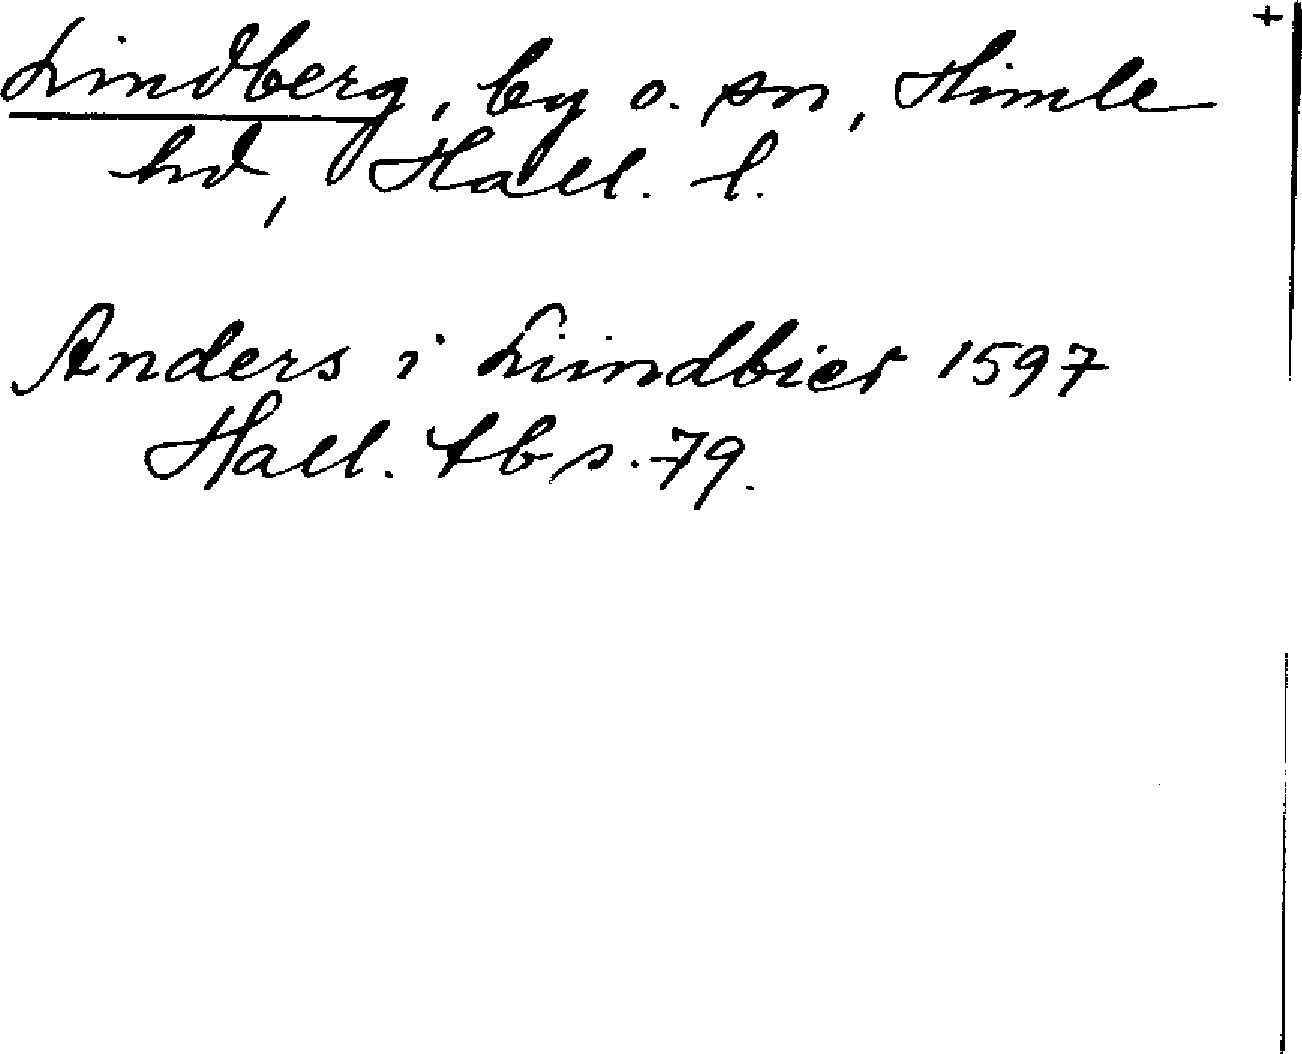 Lindberg, by o. sn, Himle +
hd, Hall. l.
Anders i Liindbier 1597
Hall. tb s. 79.